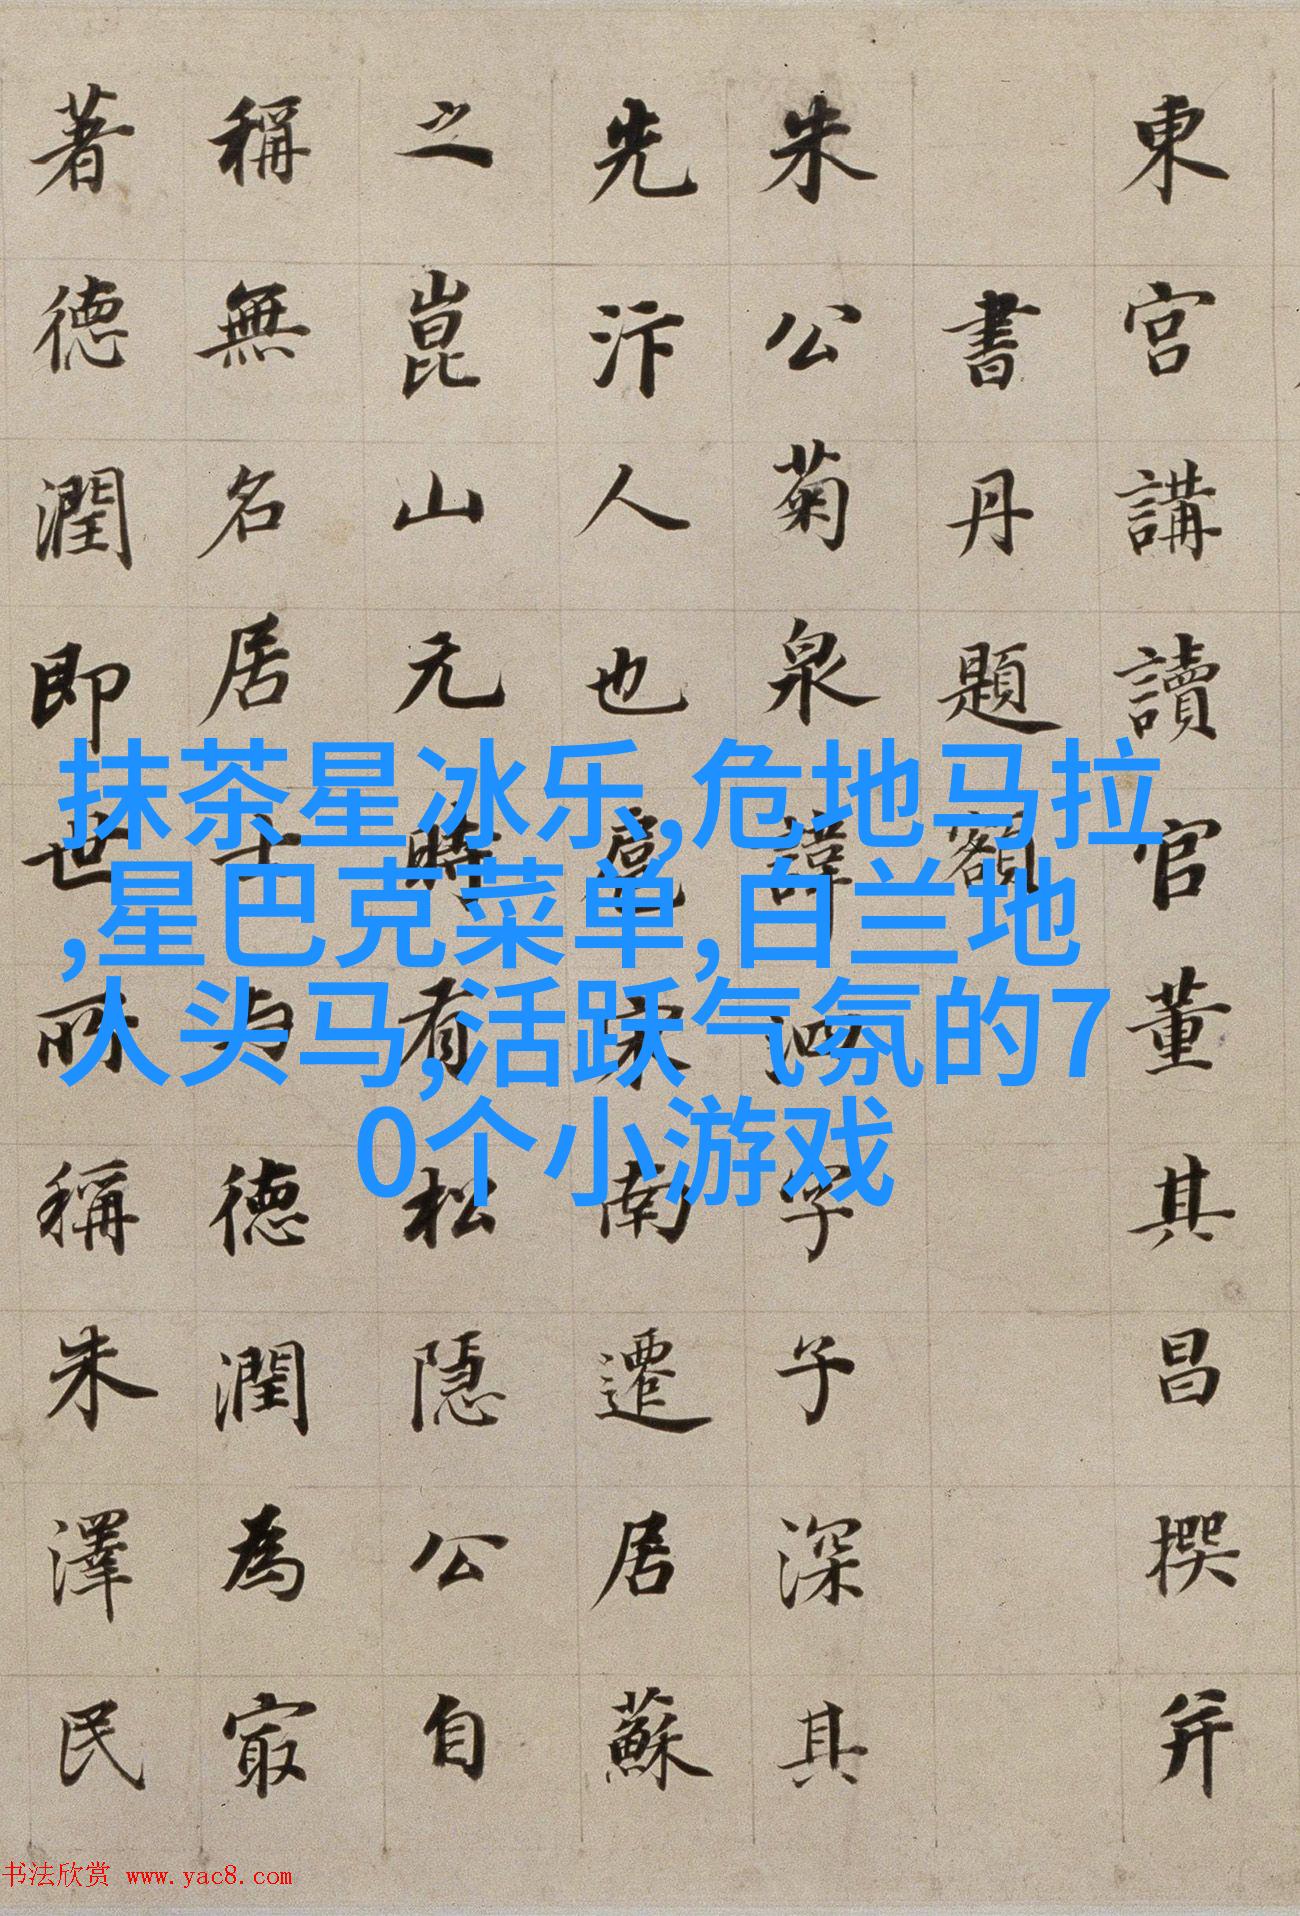 東宮講讀官董其昌撰并
書丹題額
朱公菊泉諱泗字子深其
先汴人也扈宋南遷居蘇
之崑山元時有松隱公自
稱無名居士与德潤為㝡
著德潤即世所稱朱澤民
抹茶星冰乐,危地马拉
,星巴克菜单,白兰地
人头马,活跃气氛的7
0个小游戏
书法欣赏 www.yac8.com